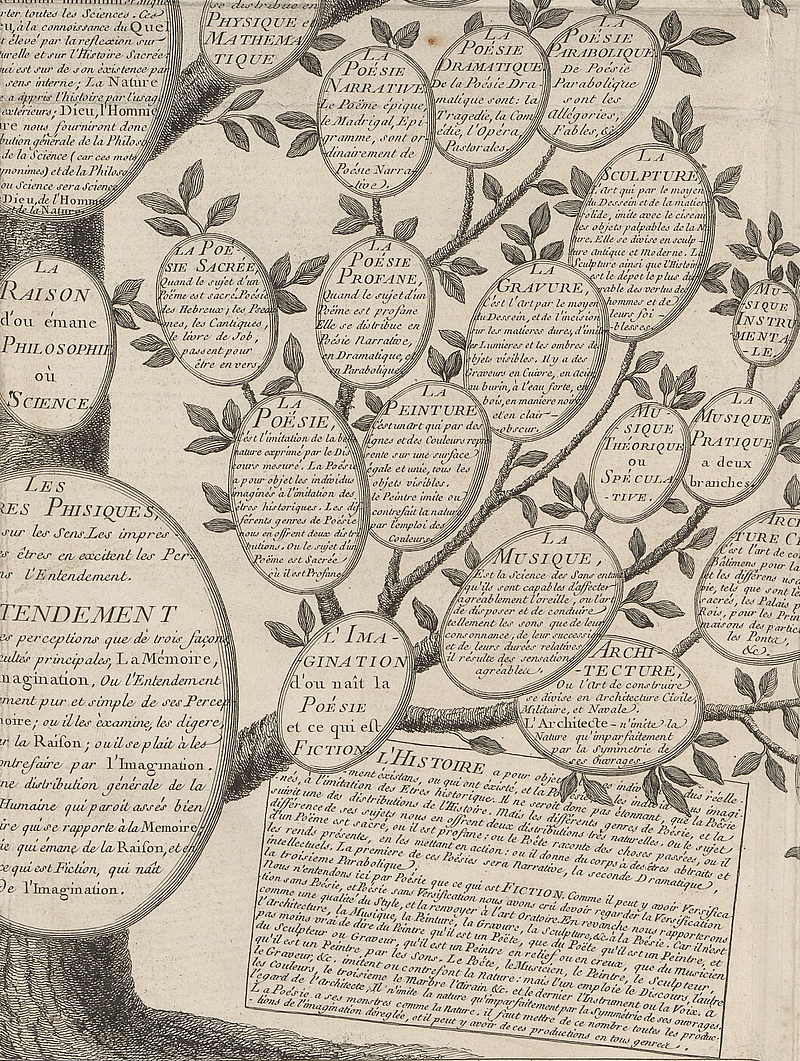 rter toutes les Sciences. Ces
eu, à la connoissance du Quel
t élevé par la reflexion sur-
turelle et sur l'Histoire Sacrée
ui est sur de son éxistence par
sens interne; La Nature
e a appris l'histoire par l'usag
extérieurs; Dieu, l'Homme
ure nous fourniront donc
bution générale de la Philoso
de la Science (car ces mots
nonimes) et de la Philoso
ou Science sera Science
Dieu, de l'Homme
de la Nature
se distribue en
PHYSIQUE et
MATHEMA
TIQUE
LA
POËSIE
NARRATIVE
Le Poëme épique,
le Madrigal, Epi-
gramme, sont or-
dinairement de
Poësie Narra-
tive.
LA
POËSIE
DRAMATIQUE
De la Poësie Dra-
matique sont: la
Tragedie, la Com
édie, l'Opéra,
Pastorales.
LA
POËSIE
PARABOLIQUE
De Poësie
Parabolique
sont les
Allégories,
Fables, &c
LA
SCULPTURE,
l'art qui par le moyen
du Dessein et de la matier
solide, imite avec le ciseau
les objets palpables de la N
ture. Elle se divise en sculp-
ture antique et Moderne. La
Sculpture ainsi que l'Histoire
est le dépot le plus du
rable des vertus des
hommes et de
leur foi-
blesses.
LA
RAISON
d'ou émane
PHILOSOPHIE
où
SCIENCE.
LA POË
SIE SACRÉE,
Quand le sujet d'un
Poëme est sacré. Poësie
des Hebreux; les Pseau
mes, les Cantiques,
le livre de Job,
passent pour
être en vers.
LA
POËSIE
PROFANE,
Quand le sujet d'un
Poëme est profane
Elle se distribue en
Poësie Narrative,
en Dramatique, et
en Parabolique.
LA
GRAVURE,
c'est l'art par le moyen
du Dessein, et de l'incision
sur les matieres dures, d'imit
les Lumieres et les ombres des
objets visibles. Il y a des
Graveurs en Cuivre, en Acier
au burin, à l'eau forte, en
bois, en maniere noire
et en clair-
obscur.
MU-
SIQUE
INSTRU
MENTA-
LE.
LA
POËSIE,
c'est l'imitation de la bel
nature exprimé par le Dis
cours mesuré. La Poësie
a pour objet les individus
imaginés à l'imitation des
êtres historiques. Les dif
férents genres de Poësie
nous en offrent deux distri
butions. Ou le sujet d'un
Poëme est Sacrée
où il est Profane
LA
PEINTURE
c'est un art qui par des
lignes et des Couleurs repre
sente sur une surface
égale et unie, tous les
objets visibles.
le Peintre imite ou
contrefait la nature
par l'emploi des
Couleurs
MU-
SIQUE
THÉORIQUE
ou
SPÉCULA
-TIVE.
LA
MUSIQUE
PRATIQUE
a deux
branches.
ARCHI
TURE CI
C'est l'art de con
Bâtimens pour la
et les différens usa
vie, tels que sont le
sacrés, les Palais p
Rois, pour les Prin
maisons des partic
les Ponts,
&c.
LES
RES PHISIQUES,
sur les Sens. Les impres
s êtres en excitent les Per-
ns l'Entendement.
TENDEMENT
es perceptions que de trois façons
cultés principales, La Mémoire,
magination, Ou l'Entendement
ment pur et simple de ses Percep
moire; ou il les éxamine, les digere
ur la Raison; ou il se plaît à les
ontrefaire par l'Imagination.
ne distribution générale de la
Humaine qui paroit assés bien
ire qui se rapporte à la Memoire;
ie qui émane de la Raison, et en
ce qui est Fiction, qui naît
De l'Imagination.
LA
MUSIQUE,
Est la Science des Sons entant
qu'ils sont capables d'affecter
agréablement l'oreille; ou l'art
de disposer et de conduire
tellement les sons que de leur
consonnance, de leur succession
et de leurs durées relatives
il résulte des sensations
agréables.
L'IMA-
GINATION
d'ou naît la
POËSIE
et ce qui est
FICTION.
ARCHI
-TECTURE,
Ou l'art de construire
se divise en architecture Civile,
Militaire, et Navale.
L'Architecte n'imite la
Nature qu'imparfaitement
par la Symmetrie de
ses Ouvrages.
L'HISTOIRE a pour objet les individus réelle-
ment existans, ou qui ont éxisté, et la Poësie les individus imagi-
nés, à l'imitation des Etres historiques. Il ne seroit donc pas étonnant, que la Poësie
suivit une des distributions de l'Histoire. Mais les différents genres de Poësie, et la
différence de ses sujets nous en offrent deux distributions très naturelles. Ou le sujet
d'un Poëme est sacré, ou il est profane: ou le Poëte raconte des choses passées, ou il
les rends présente, en les mettant en action: ou il donne du corps à des êtres abtraits et
intellectuels. La premiere de ces Poësies sera Narrative, la seconde Dramatique,
la troisieme Parabolique.
Nous n'entendons ici par Poësie que ce qui est FICTION. Comme il peut y avoir Versifica
tion sans Poësie, et Poësie sans Versification nous avons crû devoir regarder la Versification
comme une qualité du Style, et la renvoyer à l'art Oratoire. En revanche nous rapporterons
l'Architecture, la Musique, la Peinture, la Gravure, la Sculpture, &c. à la Poësie. Car il n'est
pas moins vrai de dire du Peintre qu'il est un Poëte, que du Poëte qu'il est un Peintre, et
du Sculpteur ou Graveur, qu'il est un Peintre en relief ou en creux, que du Musicien
qu'il est un Peintre par les Sons. Le Poëte, le Musicien, le Peintre, le Sculpteur,
le Graveur, &c. imitent ou contrefont la Nature: mais l'un emploie le Discours, l'autre
les Couleurs, le troisieme le Marbre l'Airain &c. et le dernier l'Instrument ou la Voix. A
l'egard de l'Architecte, Il n'imite la nature qu'imparfaitement par la Symmétrie de ses ouvrages.
La Poësie a ses monstres comme la nature. il faut mettre de ce nombre toutes les produc-
tions de l'imagination déréglée, et il peut y avoir de ces productions en tous genres.